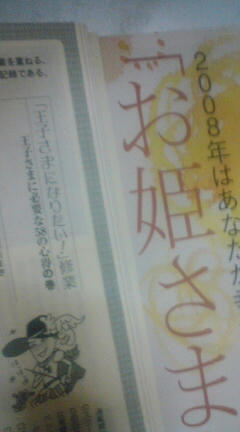 2008年はあなたが
「お姫さま
を重ねる、
記録である。
「王子さまになりたい！」修業
王子さまに必要な58の心得の巻